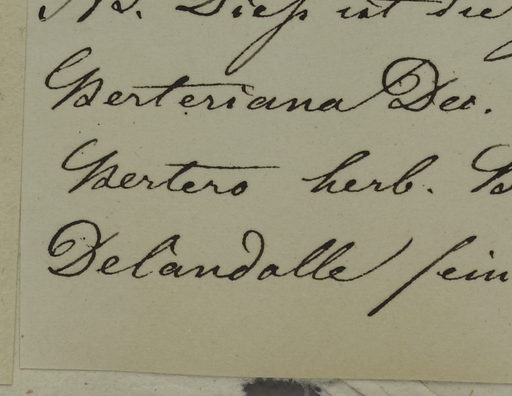 NB. Dieß ist die
Berteriana Dec.
Bertero herb. B
Delandolle sein